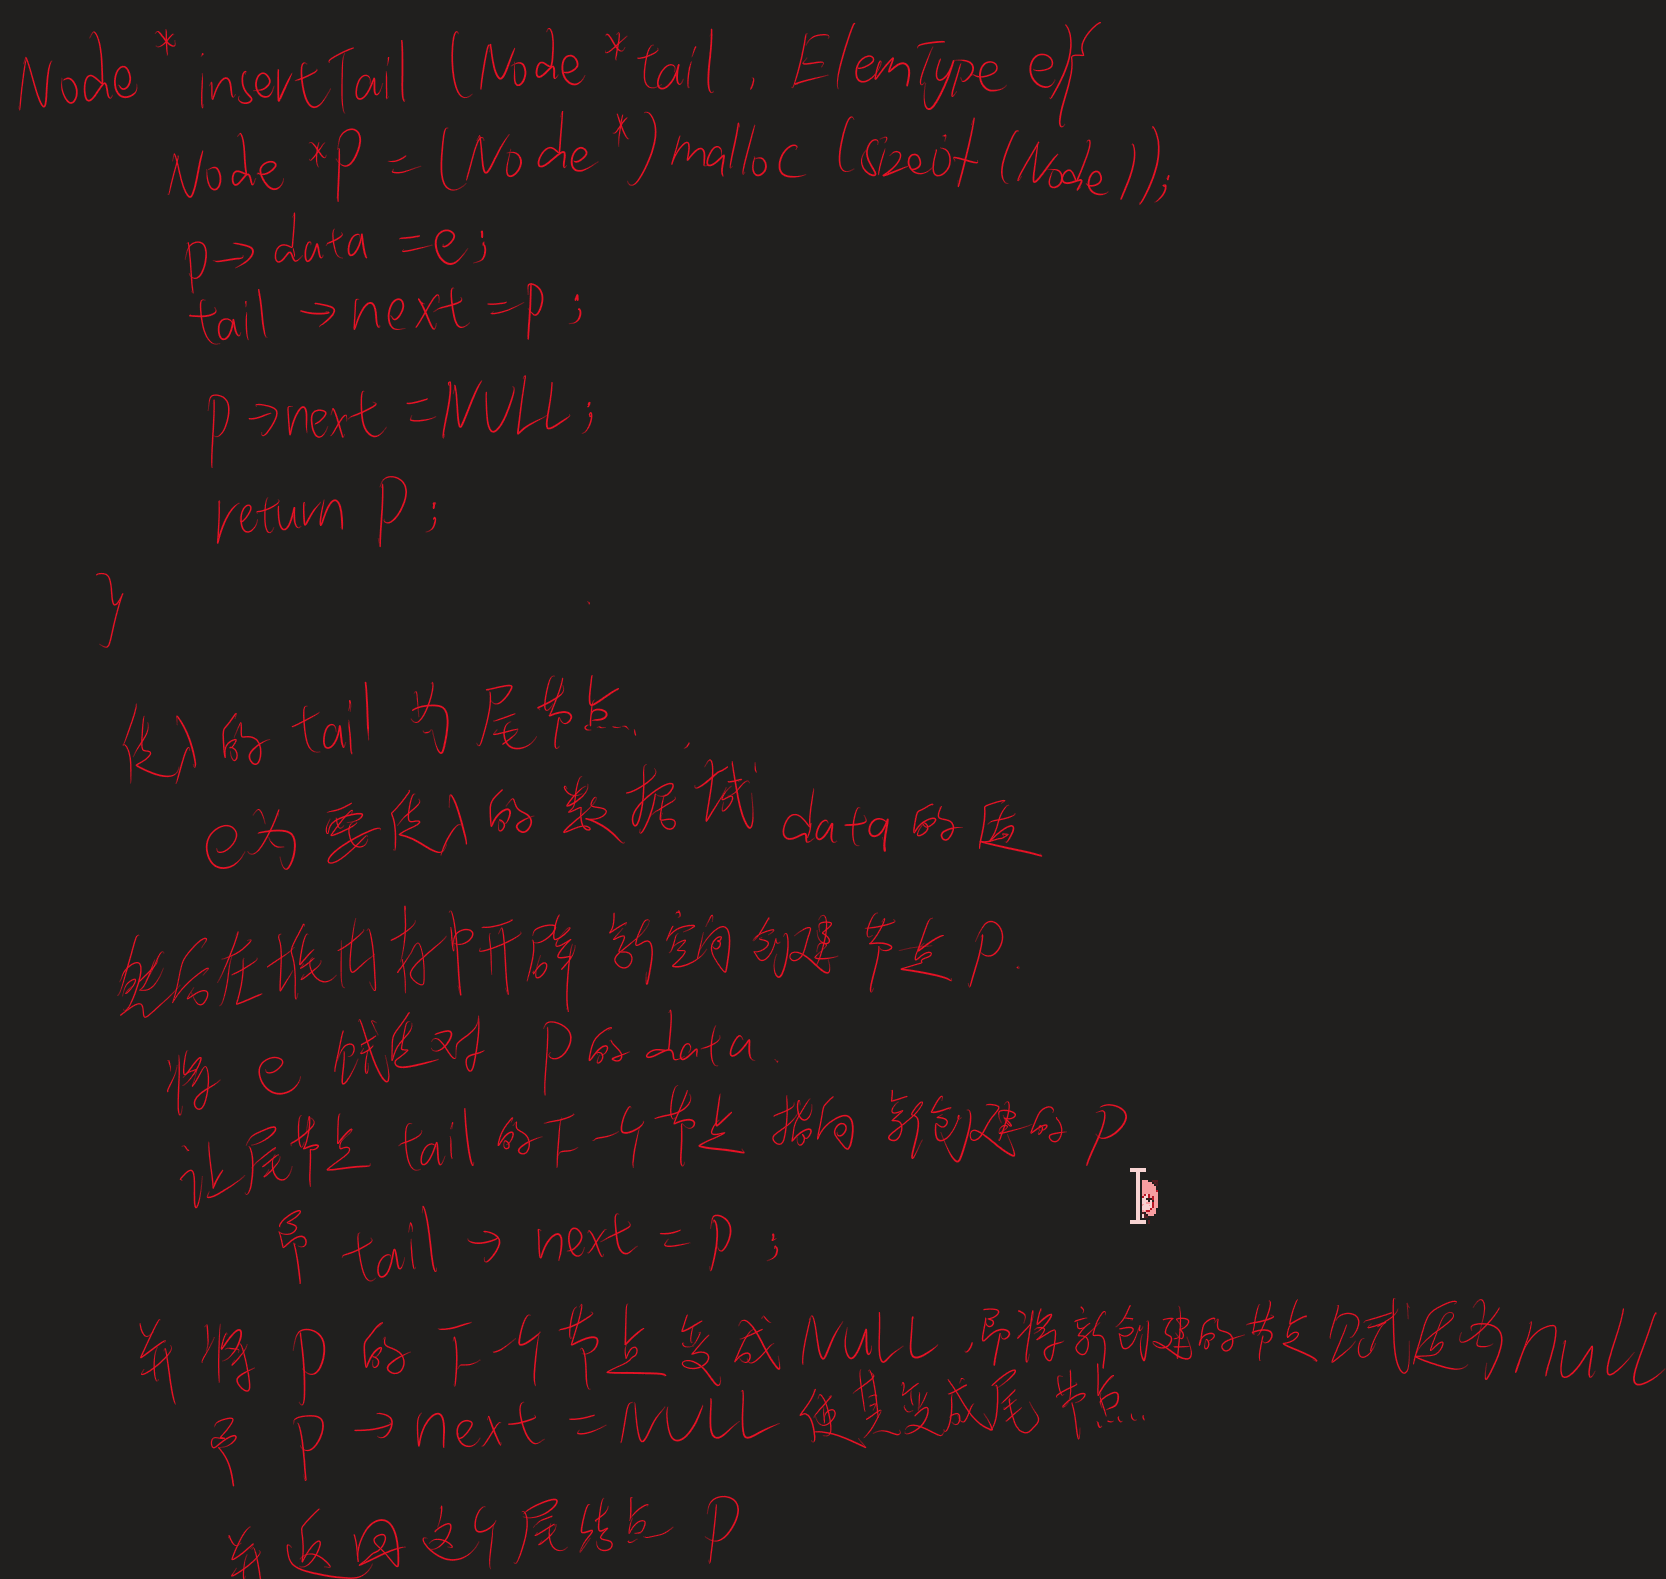 Node * insertTail (Node * tail , ElemType e){
Node *P = (Node *) malloc (sizeof (Node));
p→ data = e;
tail → next = p ;
p → next = NULL ;
return P ;
}
传入的 tail 为 尾节点.
e为 要传入的数据域 data 的值
然后在堆内存中开辟 新空间 创建 节点 P.
将 e 赋值对 P 的 data.
让尾节点 tail 的下一个节点 指向 新创建的 P
即 tail → next = P ;
并将 P 的下一个节点变成 NULL ,即将新创建的节点 值为 null
即 P → next = NULL 使其变成尾 节点..
并返回这个尾结点 P